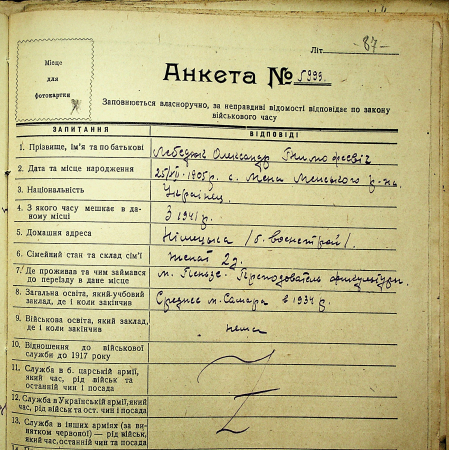 -87-
Літ.
Місце
для
фотокартки
Анкета № 5999.
Заповнюється власноручно, за неправдиві відомості відповідає по закону
військового часу
ЗАПИТАННЯ
ВІДПОВІДІ
1. Прізвище, ім'я та по батькові
Олександр Тимофеєвіч
2. Дата та місце народження
25/VII-1905р. с. Мена Менського р-на
3. Національність
Украінец.
4. З якого часу мешкає в да-
ному місці
З 1941 р.
5. Домашня адреса
Німецька /б. воєнстрой/.
6. Сімейний стан та склад сім'ї
женат 2д.
7. Де проживав та чим займався
до переїзду в дане місце
м. Пенза. Преподователь физкультуры.
8. Загальна освіта, який учбовий
заклад, де і коли закінчив
Среднее м. Самара в 1934 г.
9. Військова освіта, який заклад,
де і коли закінчив
нема
10. Відношення до військової
служби до 1917 року
11. Служба в б. царській армії,
який час, рід військ та
останній чин і посада
12. Служба в Українській армії, який
час, рід військ та ост. чин і посада
13. Служба в інших арміях (за ви-
нятком червоної) — рід військ,
який час, останній чин та посада